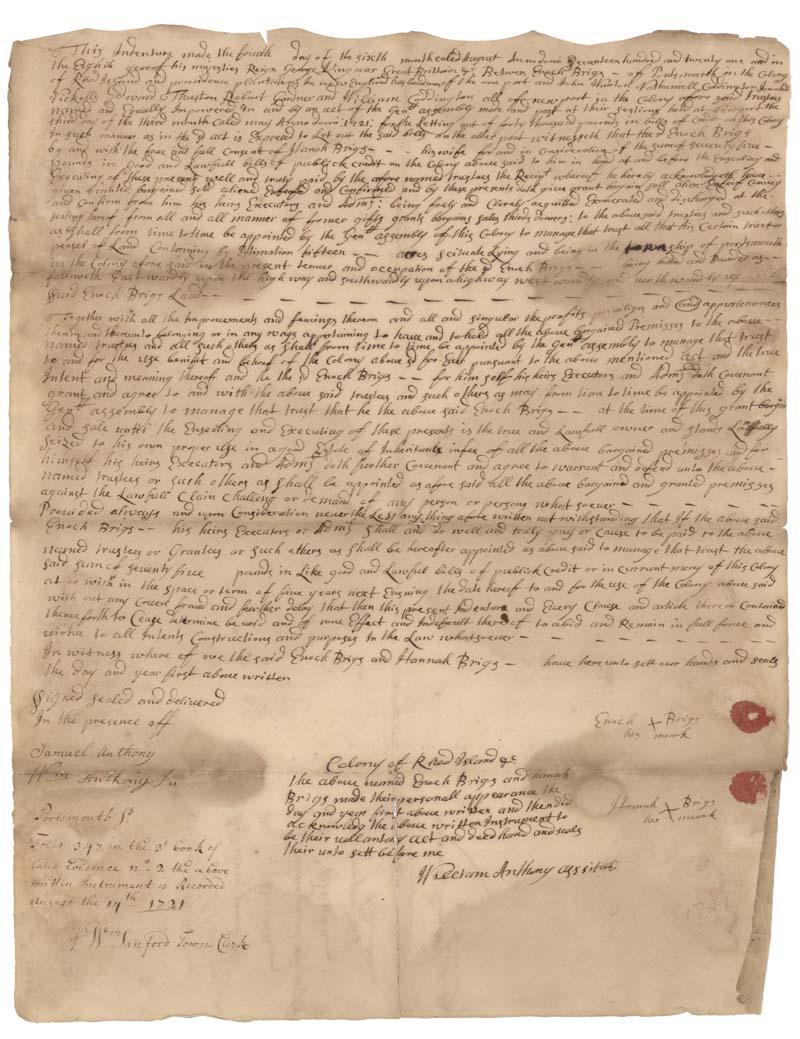 This Indenture made the fourth day of the sixth month caled August Annodom Seventeen hundred and twenty one and in
the Eighth year of his majesties Reign George King over Great Brittain &c Between Enoch Brigs - of Portsmouth in the Colony
of Rhod Island and providence plantations In new england of the one part and John Wanton Nathaniell Coddington Jonathan
Nickolls Edward Thurston Robart Gardner and William Coddington all of newport in the Colony afore said Trustees
named and Equally Impowered In and by an act of the Genll assembly made and past at their sessions held at newport the
third day of the third month Caled may Annodom: 1721: for the letting out of forty thousand pounds in bills of Credit on this Colony
in such manner as in the sd act is Expresed to Let out the said bills on the other part witnesseth that the sd Enoch Brigs
by and with the free and full Consent of Hanah Brigs - - his wife for and in Consideration of the sum of seventy five -
pounds in Good and Lawfull bills of publick credit on the Colony above said to him in hand at and before the Ensealing and
Executing of these present well and truly paid by the afore named trustees the Receipt whereof he hereby acknowledgeth have -
given Granted bargained sold aliened Enfeofed and Confirmed and by these presents doth give grant bargain sell alien Enfeof Convey
and Confirm from him his heirs Executors and Adms: being freely and Clerely acquited Exonerated and discharged at the
sealing hereof from all and all manner of former gifts grants bargains sales thirds dowers: to the above said trustees and such others
as Shall from time to time be appointed by the Genll assembly of this Colony to manage that trust all that His Certain tract or
persel of Land Containing by Estimation fifteen - - acres scituate Lying and being in the township of portsmouth
in the Colony afore said in the present tenuer and occupation of the sd Enoch Brigs - - being butted and Bounded as -
followeth Eastwardly upon the high way and southwardly upon a highway westwardly and northwardly
said Enoch Brigs Land - - - - - - - - - - - -
Together with all the Improvments and fencings thereon and all and singular the profits priviliges and appurtenances
therein and thereunto belonging or in any ways appertaining to have and to hold all the above bargained Premisses to the above -
named trustees and all such others as shall from time to time be appointed by the Genll assembly to manage that trust
to and for the use benifit and behoof of the Colony above sd for Ever pursuant to the above mentioned act and the true
Intent and meaning thereof and he the sd Enoch Brigs - - for him self his heirs Executors and Adms doth Covenant
grant and agree to and with the above said trustees and such others as may from time to time be appointed by the
Genll assembly to manage that trust that he the above said Enoch Brigs - - at the time of this grant bargain
and sale untill the Ensealing and Executing of these presents is the true and Lawfull owner and stands Lawfully
seized to his own proper use in a good Estate of Inheritants in fee of all the above bargained premisses and for -
himself his heirs Executors and Adms doth further Covenant and agree to warrant and defend unto the above -
named trustees or such others as shall be appointed as afore said all the above bargained and granted premisses
against the Lawfull Claim Challing or demand of any person or persons whatsoever - - - - -
Provided always and upon Consideration never the Less any thing afore written not withstanding that If the above said
Enoch Brigs - - his heirs Executors or Adms shall and do well and truly pay or Cause to be paid to the above
named trustees or Grantees or such others as shall be hereafter appointed as above said to manage that trust the above
said sum of seventy five pounds in Like good and Lawfull bills of publick credit or in currant mony of this Colony
at or with in the space or term of five years next Ensuing the date hereof to and for the use of the Colony above said
with out any Cover fraud and further delay that then this present Indenture and Every Clause and article therein Contained
thence forth to Cease determine be void and of none Effect and In default thereof to abid and Remain in full force and
virtue to all Intents Constructions and purposes In the Law whatsoever - - - - - - -
In witness where of we the said Enoch Brigs and Hannah Brigs - have here unto sett our hands and seals
the day and year first above written
Signed sealed and delivered
In the presence off
Samuel Anthony
Wm Anthony Ju
Enoch X Brigs
his mark
Hanah X Brigs
her mark
Colony of Rhod Island &c
the above named Enoch Brigs and hanah
Brigs made their personall appearance the
day and year first above written and the did
acknowledg the above written Instrument to
be their vollantary act and deed hand and seals
their unto sett before me
William Anthony assistat
Portsmouth Ss
Folio 347 in the 3d book of
land Evidence no 2 the above
written Instrument is Recorded
August the 14th 1721
pr Wm Sanford Town Clerk
1721